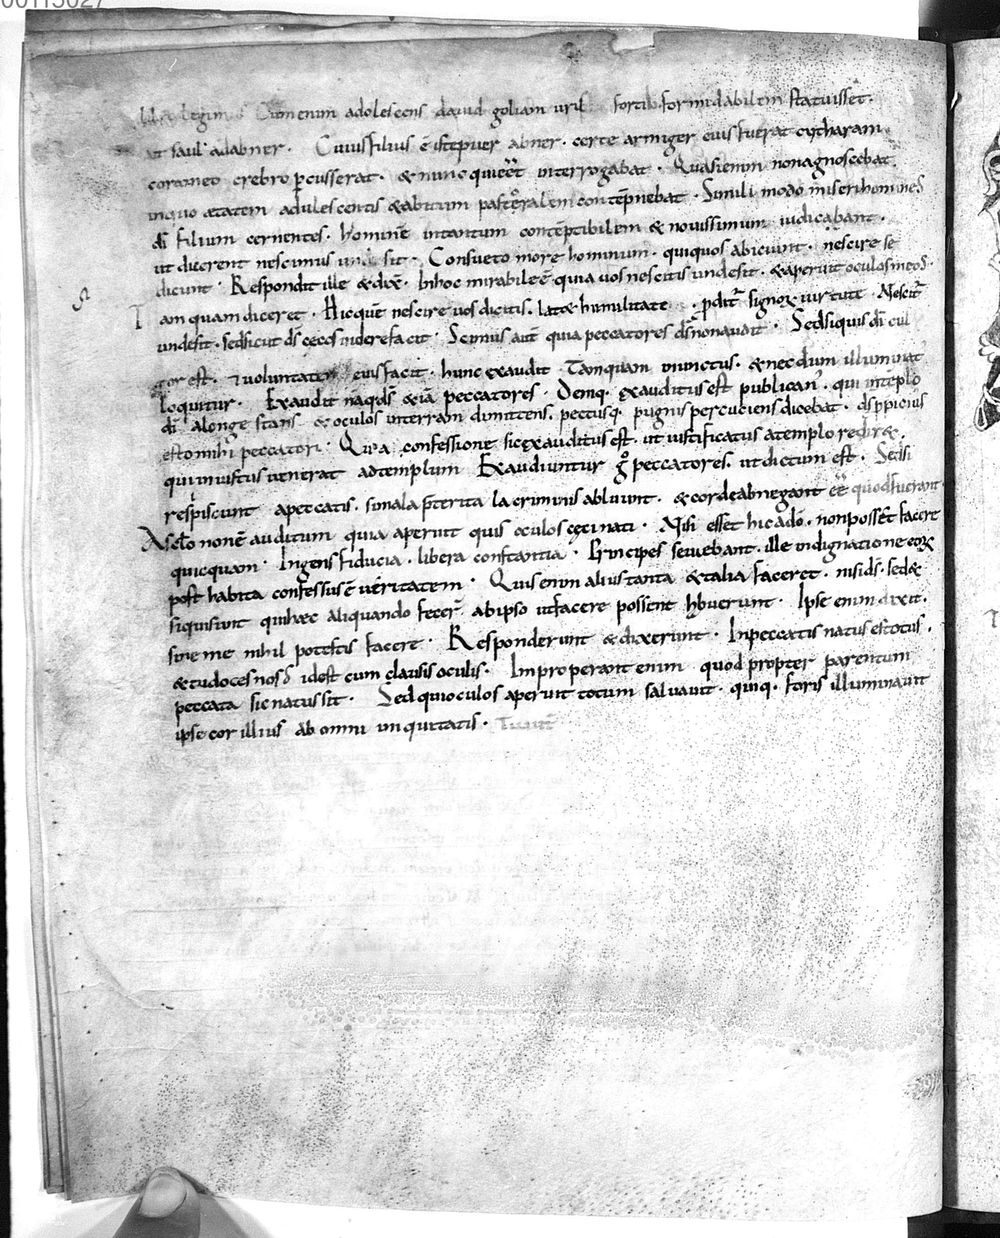 00115027
legim Cum enim adolescens dauid goliam uiri fortis formidabilem statuisset.
ait saul adabner. Cuius filius ē iste puer abner. certe armiger eius fuerat cytharam
coram eo crebro pcusserat. & nunc qui eēt interrogabat. Quasi enim non agnoscebat
in quo ætatem adulescentis & abitum pastoralem contēpnebat. Simili modo miseri homines
dī filium cernentes. hominē intantum contēptibilem & nouissimum iudicabant.
ut dicerent nescimus unde sit. Consueto more hominum. qui quos abiciunt. nescire se
dicunt. Respondit ille & dix. In hoc mirabile ē quia uos nescitis unde sit. & aperuit oculos meos
Tam quam diceret. Hic quē nescire uos dicitis. latæ humilitate. pditr signoꝝ uirtute. Nescitr
unde sit. sed sicut ds cecos uidere facit. Scimus aut quia peccatores ds non audit. Sed si quis dī cul
tor est. & uoluntatem eius facit. hunc exaudit Tamquam inunctus. & nec dum illuminat
loquitur. Exaudit naq ds & iā peccatores. Deniq. exauditus est publican. qui in tēplo
dī alonge stans & oculos in terram dimittens. pectusq. pugnis percuciens dicebat. ds ppicius
esto mihi peccatori. Qui a confessione sic exauditus est. ut iustificatus a templo redir&.
qui iniustus uenerat ad templum Exaudiuntur g peccatores. ut dictum est. Sed si
respiscunt a peccatis. si mala pterita lacrimis abluunt. & corde abnegant eē quod fuerant
A sclo non ē auditum quia aperuit quis oculos ceci nati. Nisi esset hic a dō. non posset facere
quicquam. Ingens fiducia. libera constantia. Principes seuiebant. ille indignatione eoꝝ
post habita confessus ē ueritatem. Quis enim alius tanta & talia faceret. nisi ds. sed &
si qui sunt qui hæc aliquando fecer. ab ipso ut facere possent hbuerunt. Ipse enim dixit.
sine me nihil potestis facere. Responderunt & dixerunt. In peccatis natus es totus.
& tu doces nos idest cum clausis oculis. Inproperant enim quod propter parentum
peccata sic natus sit. Sed qui oculos aperuit totum saluauit. quiq. foris illuminauit
ipse cor illius ab omni iniquitatis.